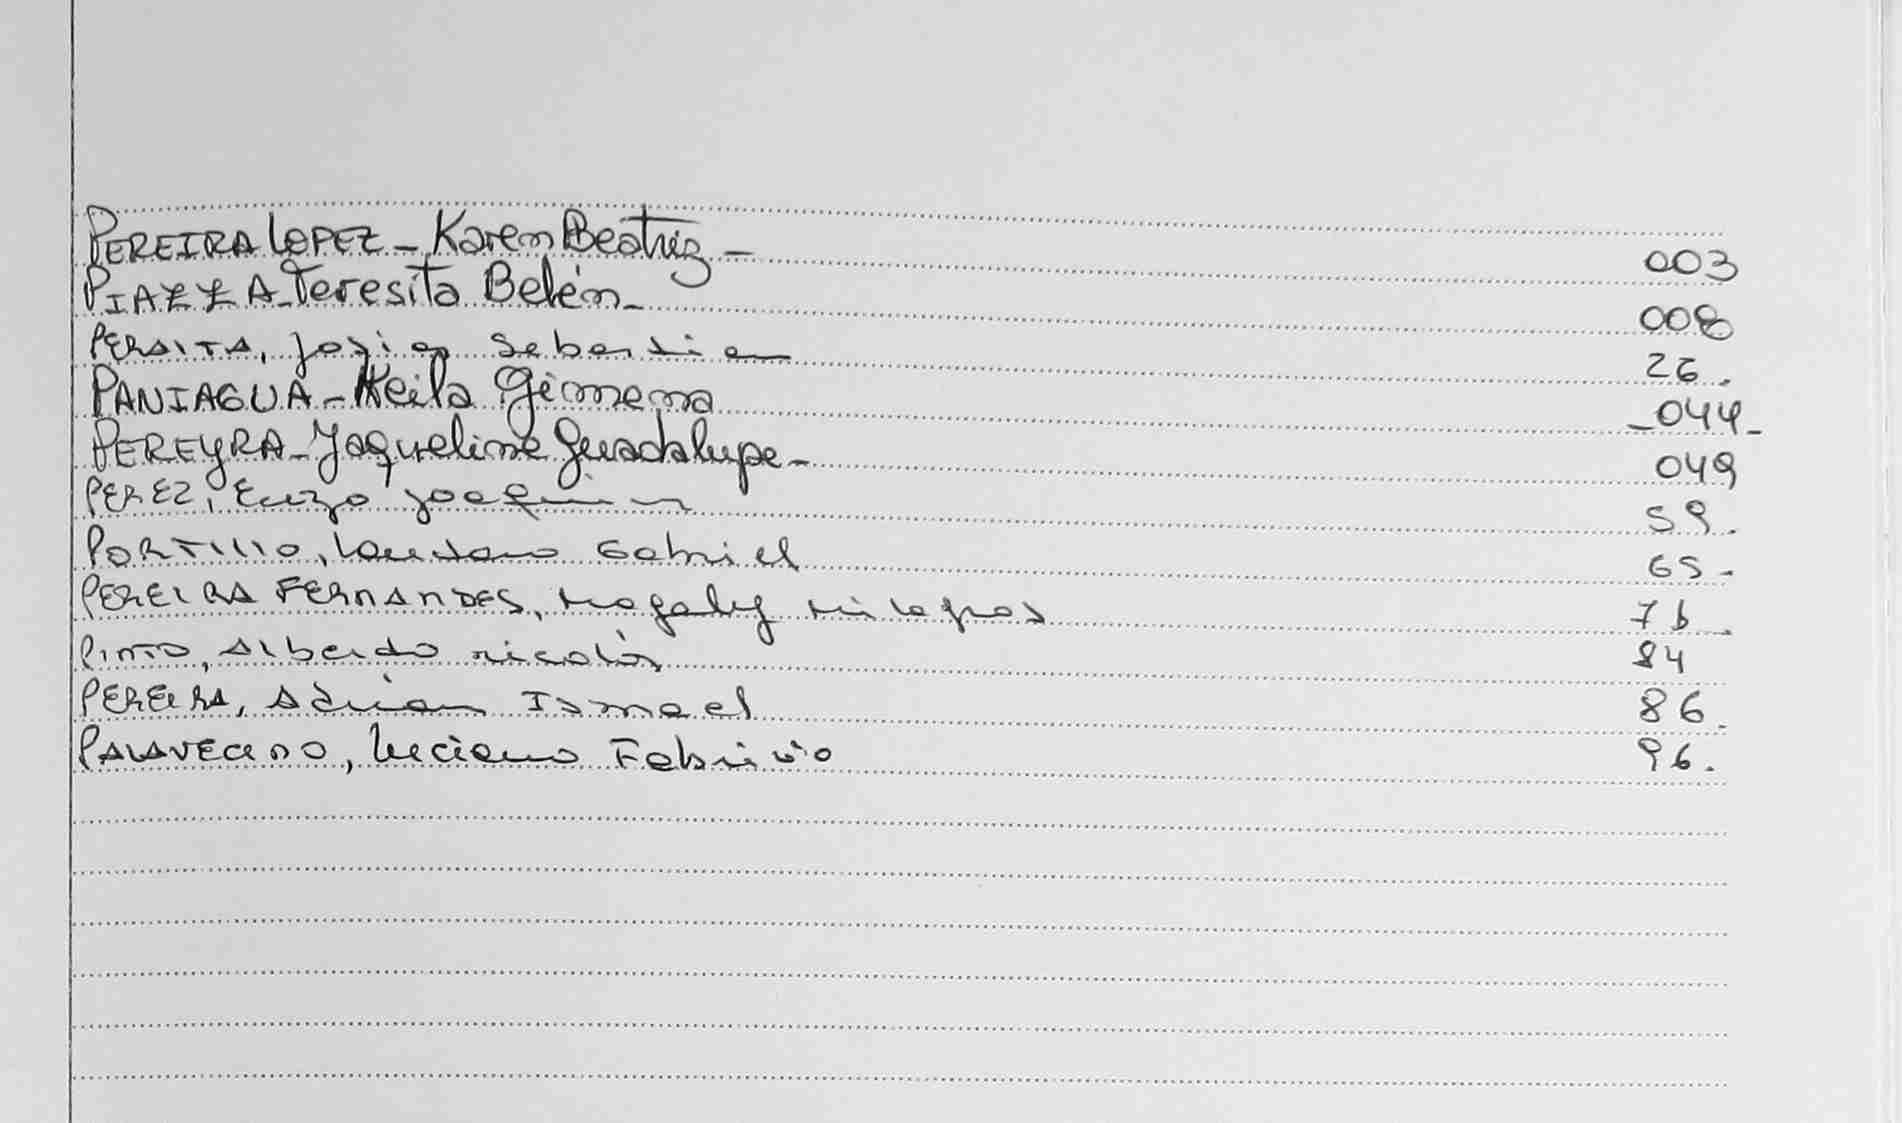 PEREIRA LOPEZ - Karen Beatriz - 003
PIAZZA - Teresita Belén - 008
PERSITA, Sebastian 26.
PANIAGUA - Keila Gimena - 044 -
PEREYRA - Jaqueline Guadalupe - 049
PEREZ, Enzo Joaquin 59.
PORTILLO, Lautaro Gabriel 65 -
PEREIRA FERNANDES, Magaly Milagros 76
PINTO, Alberto Nicolás 84
PEREIRA, Adrian Ismael 86.
PALAVECINO, Luciano Fabricio 96.